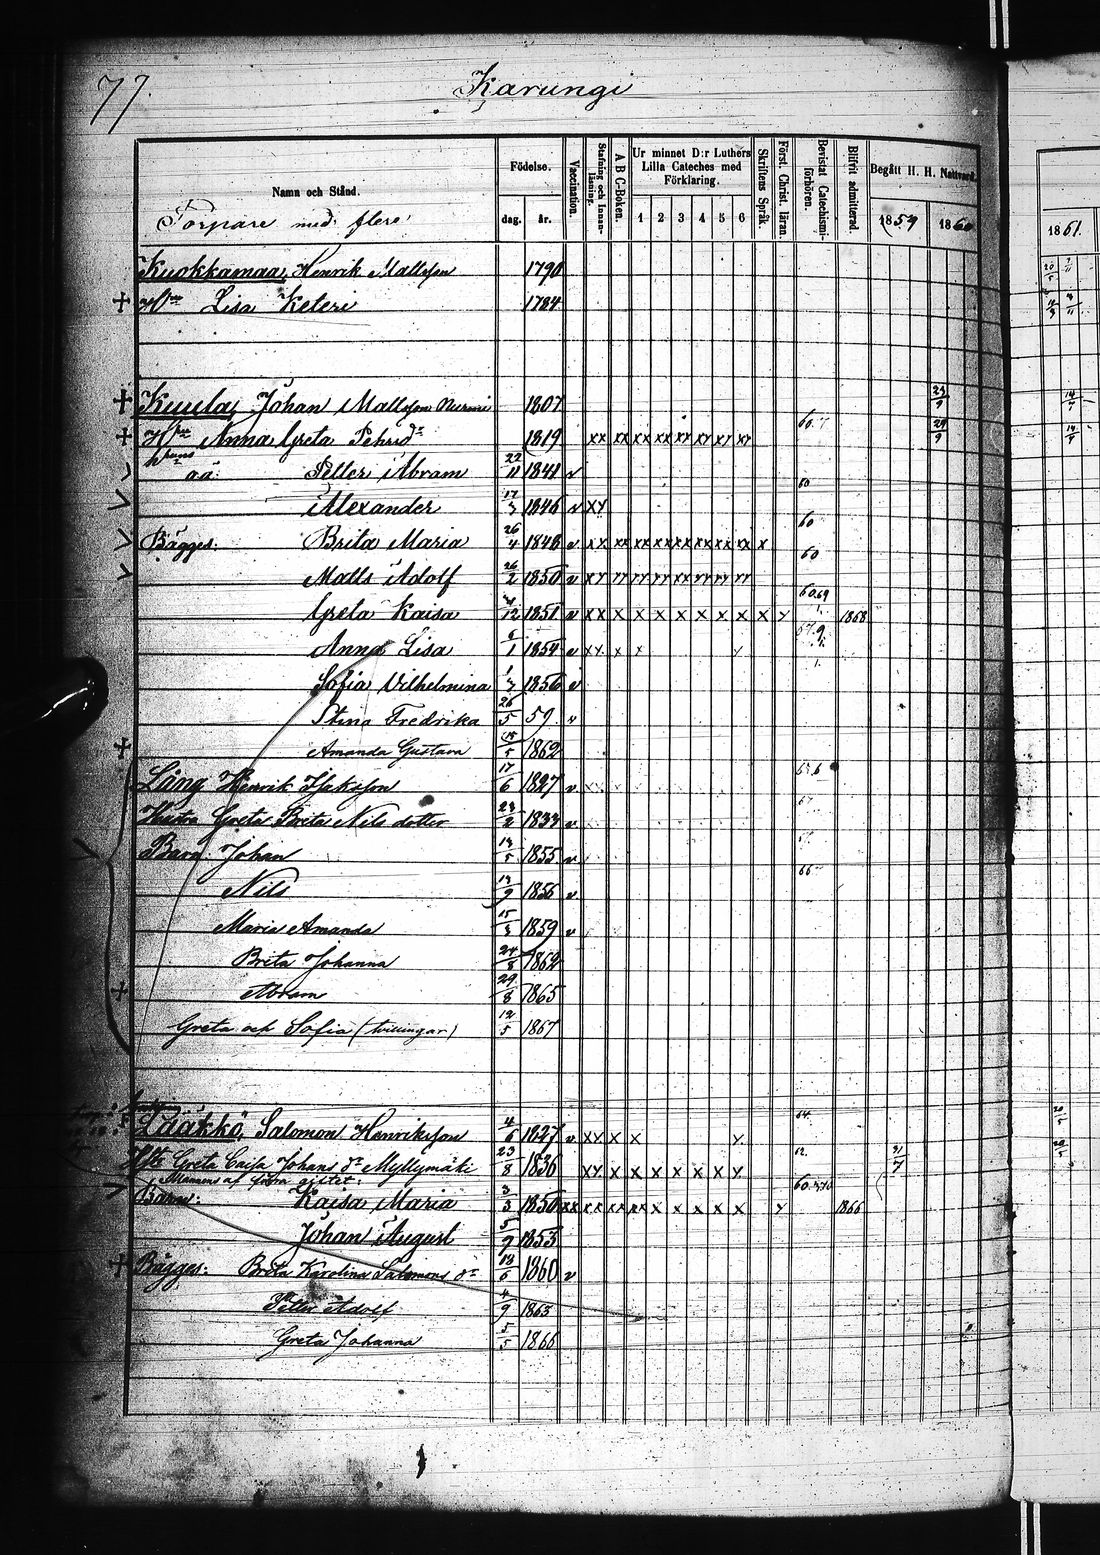 77.
Karungi
Namn och Stånd.
Torpare med flere
Födelse.
dag. år.
Vaccination.
Stafning och Innanläsning.
A B C-Boken.
Ur minnet D:r Luthers Lilla Cateches med Förklaring.
1 2 3 4 5 6
Skriftens Språk.
Först. Christ. läran.
Bevistat Catechismiförhören.
Blifvit admitterad
Begått H. H. Nattvard.
1859 1860
1861.
Kuokkamaa, Henrik Mattsson 1790
+ H:n Lisa Keteri 1784
+ Kuula, Johan Mattsson Nurmi 1807 23/9
+ Anna Greta Pehrsd:r 1819 xx xx xx xx xx xx xx xx
Petter Abram 22/11 1841 v
Alexander 17/3 1846 v xx 60
Bägges: Brita Maria 26/4 1848 v xx xx xx xx xx xx xx xx x 60
Matts Adolf 26/2 1850 v 60
Greta Kaisa 1851 v xx x x x x x x x x 60.69 1868
Anna Lisa 6/1 1854 v xx x x
Sofia Vilhelmina 1/3 1856 v
Stina Fredrika 26/5 59. v
+ Amanda Gustava 1862
Lång Henrik Isaksson 17/6 1827 v
Hustru Greta Brita Nils dotter 23/2 1833 v
Barn: Johan 13/5 1855 v
Nils 13/9 1856 v 66
Maria Amanda 15/3 1859 v
Brita Johanna 24/8 1862
+ Abram 29/8 1865
Greta och Sofia (tvillingar) 12/5 1867
Laakko, Salomon Henriksson 4/6 1827 v xx x x x 64.
Greta Caisa Johans d:r Myllymäki 23/8 1836 xx x x x x x x x 31/7
Mannens af förra giftet:
Barn: Kaisa Maria 3/3 1850 xx xx xx xx x x x x x 1866
Johan August 5/9 1853
+ Bägges: Brita Karolina Salomons d:r 13/6 1860 v
Petter Adolf 4/9 1863
Greta Johanna 5/5 1866